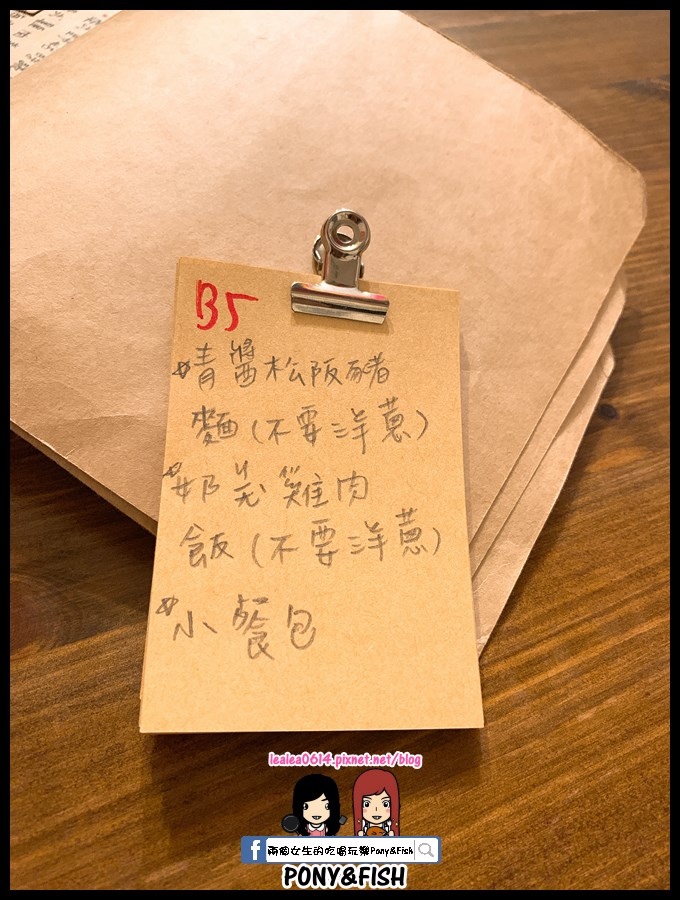 B5
青醬松阪豬
麵(不要洋蔥)
奶羌雞肉
飯(不要洋蔥)
小餐包
lealea0614.pixnet.net/blog
兩個女生的吃喝玩樂Pony&Fish
PONY&FISH